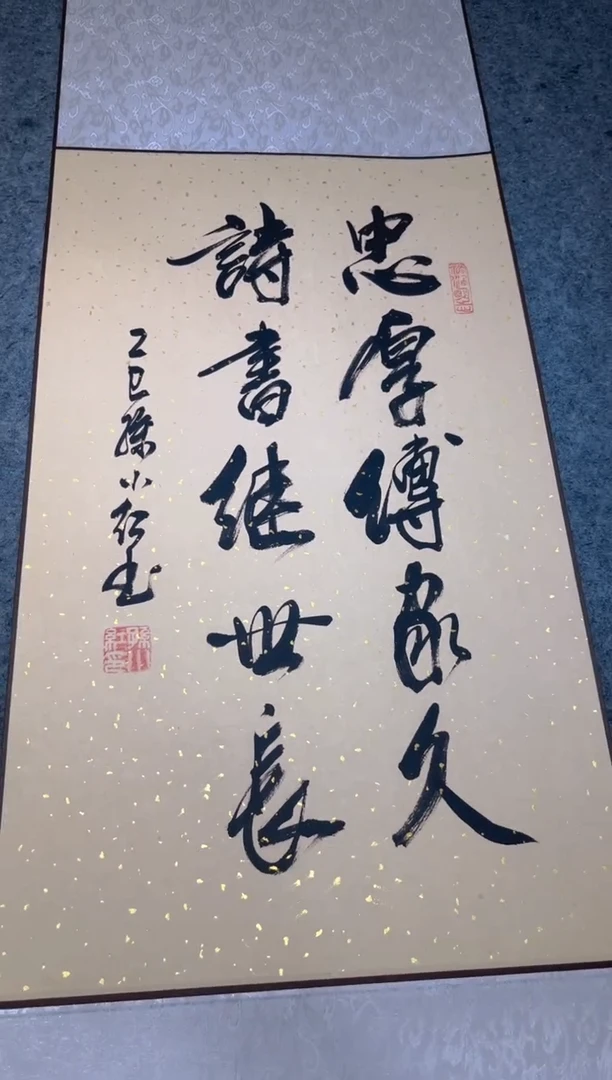 忠厚傳家久
詩書继世長
乙巳孫小红书